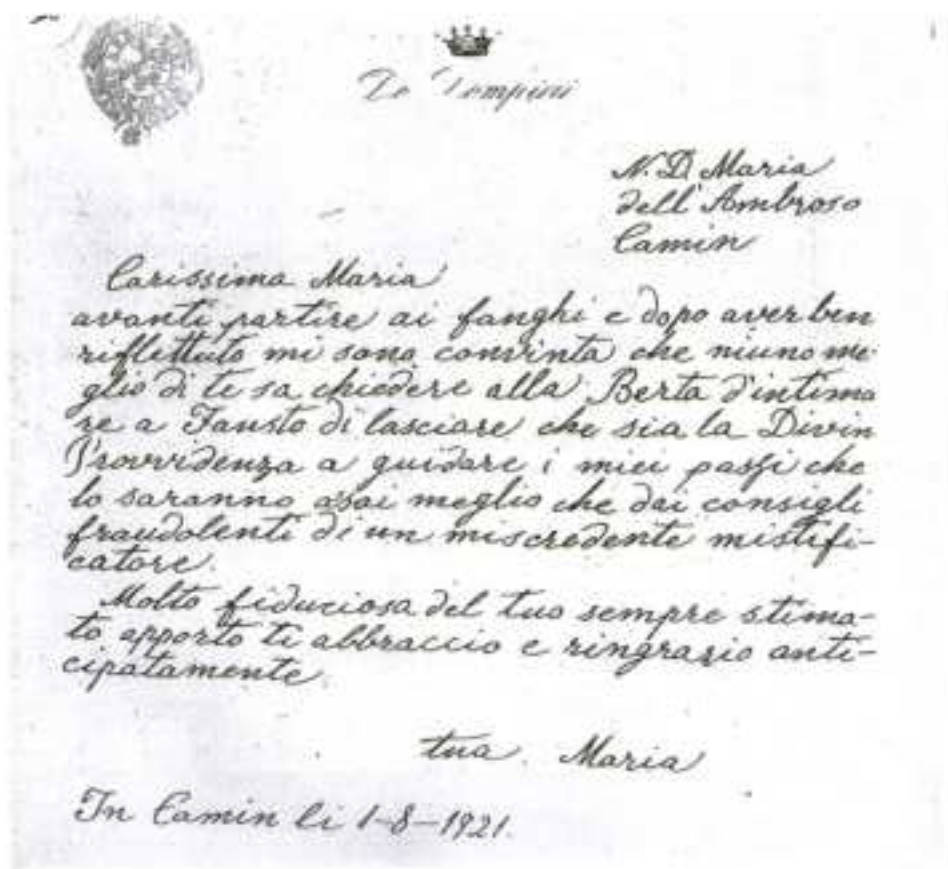 De Pompini
N. D. Maria
dell'Ambroso
Camin
Carissima Maria
avanti partire ai fanghi e dopo aver ben
riflettuto mi sono convinta che niuno me-
glio di te sa chiedere alla Berta d'intima
re a Fausto di lasciare che sia la Divin
Provvidenza a guidare i miei passi che
lo saranno assai meglio che dai consigli
fraudolenti di un miscredente mistifi-
catore.
Molto fiduciosa del tuo sempre stima-
to apporto ti abbraccio e ringrazio anti-
cipatamente.
tua. Maria
In Camin li 1-8-1921.